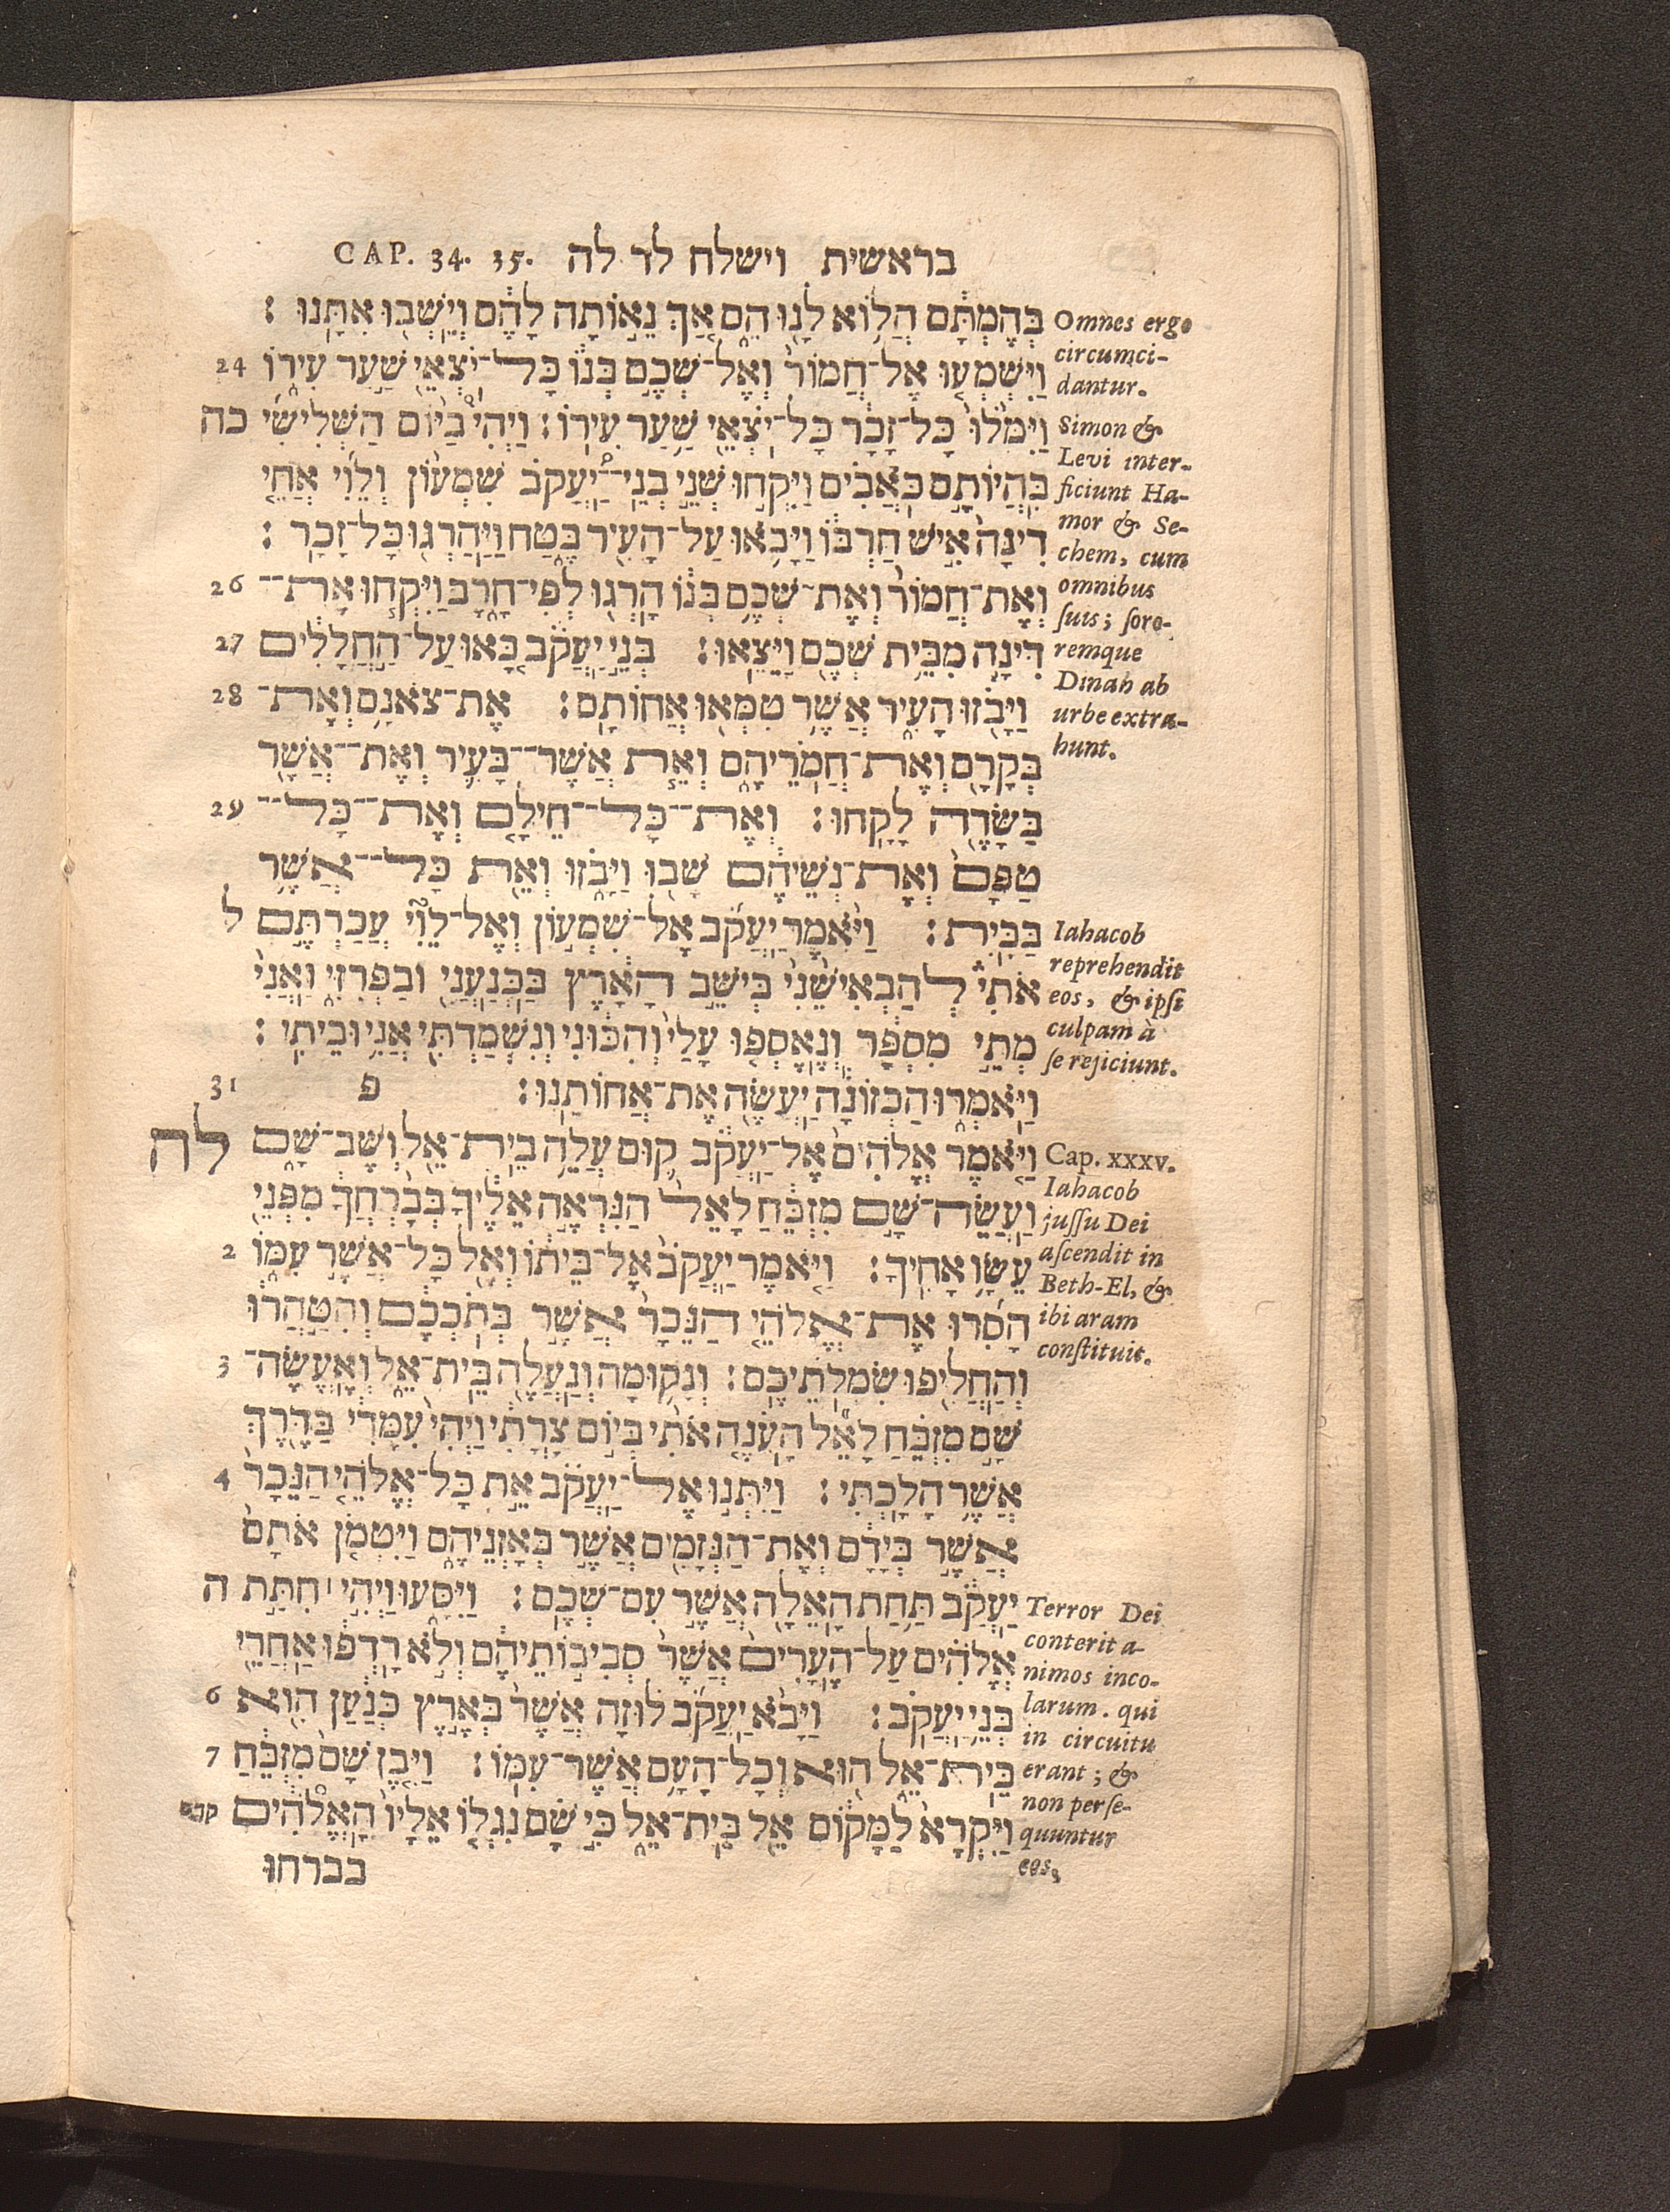 בראשית וישלח לד לה CAP. 34. 35.
בְּהֶמְתָּם הֲלוֹא לָנוּ הֵם אַךְ נֵאוֹתָה לָהֶם וְיֵשְׁבוּ אִתָּנוּ׃
וַיִּשְׁמְעוּ אֶל־חֲמוֹר וְאֶל־שְׁכֶם בְּנוֹ כָּל־יֹצְאֵי שַׁעַר עִירוֹ 24
וַיִּמֹּלוּ כָּל־זָכָר כָּל־יֹצְאֵי שַׁעַר עִירוֹ׃ וַיְהִי בַיּוֹם הַשְּׁלִישִׁי כה
בִּהְיוֹתָם כֹּאֲבִים וַיִּקְחוּ שְׁנֵי בְנֵי־יַעֲקֹב שִׁמְעוֹן וְלֵוִי אֲחֵי
דִינָה אִישׁ חַרְבּוֹ וַיָּבֹאוּ עַל־הָעִיר בֶּטַח וַיַּהַרְגוּ כָּל־זָכָר׃
וְאֶת־חֲמוֹר וְאֶת־שְׁכֶם בְּנוֹ הָרְגוּ לְפִי־חָרֶב וַיִּקְחוּ אֶת־ 26
דִּינָה מִבֵּית שְׁכֶם וַיֵּצֵאוּ׃ בְּנֵי יַעֲקֹב בָּאוּ עַל־הַחֲלָלִים 27
וַיָּבֹזּוּ הָעִיר אֲשֶׁר טִמְּאוּ אֲחוֹתָם׃ אֶת־צֹאנָם וְאֶת־ 28
בְּקָרָם וְאֶת־חֲמֹרֵיהֶם וְאֵת אֲשֶׁר־בָּעִיר וְאֶת־אֲשֶׁר
בַּשָּׂדֶה לָקָחוּ׃ וְאֶת־כָּל־חֵילָם וְאֶת־כָּל־ 29
טַפָּם וְאֶת־נְשֵׁיהֶם שָׁבוּ וַיָּבֹזּוּ וְאֵת כָּל־אֲשֶׁר
בַּבָּיִת׃ וַיֹּאמֶר יַעֲקֹב אֶל־שִׁמְעוֹן וְאֶל־לֵוִי עֲכַרְתֶּם ל
אֹתִי לְהַבְאִישֵׁנִי בְּיֹשֵׁב הָאָרֶץ בַּכְּנַעֲנִי וּבַפְּרִזִּי וַאֲנִי
מְתֵי מִסְפָּר וְנֶאֶסְפוּ עָלַי וְהִכּוּנִי וְנִשְׁמַדְתִּי אֲנִי וּבֵיתִי׃
וַיֹּאמְרוּ הַכְזוֹנָה יַעֲשֶׂה אֶת־אֲחוֹתֵנוּ׃ פ 31
וַיֹּאמֶר אֱלֹהִים אֶל־יַעֲקֹב קוּם עֲלֵה בֵית־אֵל וְשֶׁב־שָׁם לה
וַעֲשֵׂה־שָׁם מִזְבֵּחַ לָאֵל הַנִּרְאֶה אֵלֶיךָ בְּבָרְחֲךָ מִפְּנֵי
עֵשָׂו אָחִיךָ׃ וַיֹּאמֶר יַעֲקֹב אֶל־בֵּיתוֹ וְאֶל כָּל־אֲשֶׁר עִמּוֹ 2
הָסִרוּ אֶת־אֱלֹהֵי הַנֵּכָר אֲשֶׁר בְּתֹכְכֶם וְהִטַּהֲרוּ
וְהַחֲלִיפוּ שִׂמְלֹתֵיכֶם׃ וְנָקוּמָה וְנַעֲלֶה בֵּית־אֵל וְאֶעֱשֶׂה־ 3
שָּׁם מִזְבֵּחַ לָאֵל הָעֹנֶה אֹתִי בְּיוֹם צָרָתִי וַיְהִי עִמָּדִי בַּדֶּרֶךְ
אֲשֶׁר הָלָכְתִּי׃ וַיִּתְּנוּ אֶל־יַעֲקֹב אֵת כָּל־אֱלֹהֵי הַנֵּכָר 4
אֲשֶׁר בְּיָדָם וְאֶת־הַנְּזָמִים אֲשֶׁר בְּאָזְנֵיהֶם וַיִּטְמֹן אֹתָם
יַעֲקֹב תַּחַת הָאֵלָה אֲשֶׁר עִם־שְׁכֶם׃ וַיִּסָּעוּ וַיְהִי חִתַּת ה
אֱלֹהִים עַל־הֶעָרִים אֲשֶׁר סְבִיבוֹתֵיהֶם וְלֹא רָדְפוּ אַחֲרֵי
בְּנֵי יַעֲקֹב׃ וַיָּבֹא יַעֲקֹב לוּזָה אֲשֶׁר בְּאֶרֶץ כְּנַעַן הִוא 6
בֵּית־אֵל הוּא וְכָל־הָעָם אֲשֶׁר־עִמּוֹ׃ וַיִּבֶן שָׁם מִזְבֵּחַ 7
וַיִּקְרָא לַמָּקוֹם אֵל בֵּית־אֵל כִּי שָׁם נִגְלוּ אֵלָיו הָאֱלֹהִים
בברחו
Omnes ergo
circumci-
dantur.
Simon &
Levi inter-
ficiunt Ha-
mor & Se-
chem, cum
omnibus
suis; soro-
remque
Dinah ab
urbe extra-
hunt.
Iahacob
reprehendit
eos, & ipsi
culpam à
se rejiciunt.
Cap. xxxv.
Iahacob
jussu Dei
ascendit in
Beth-El, &
ibi aram
constituit.
Terror Dei
conterit a-
nimos inco-
larum. qui
in circuitu
erant; &
non perse-
quuntur
eos.